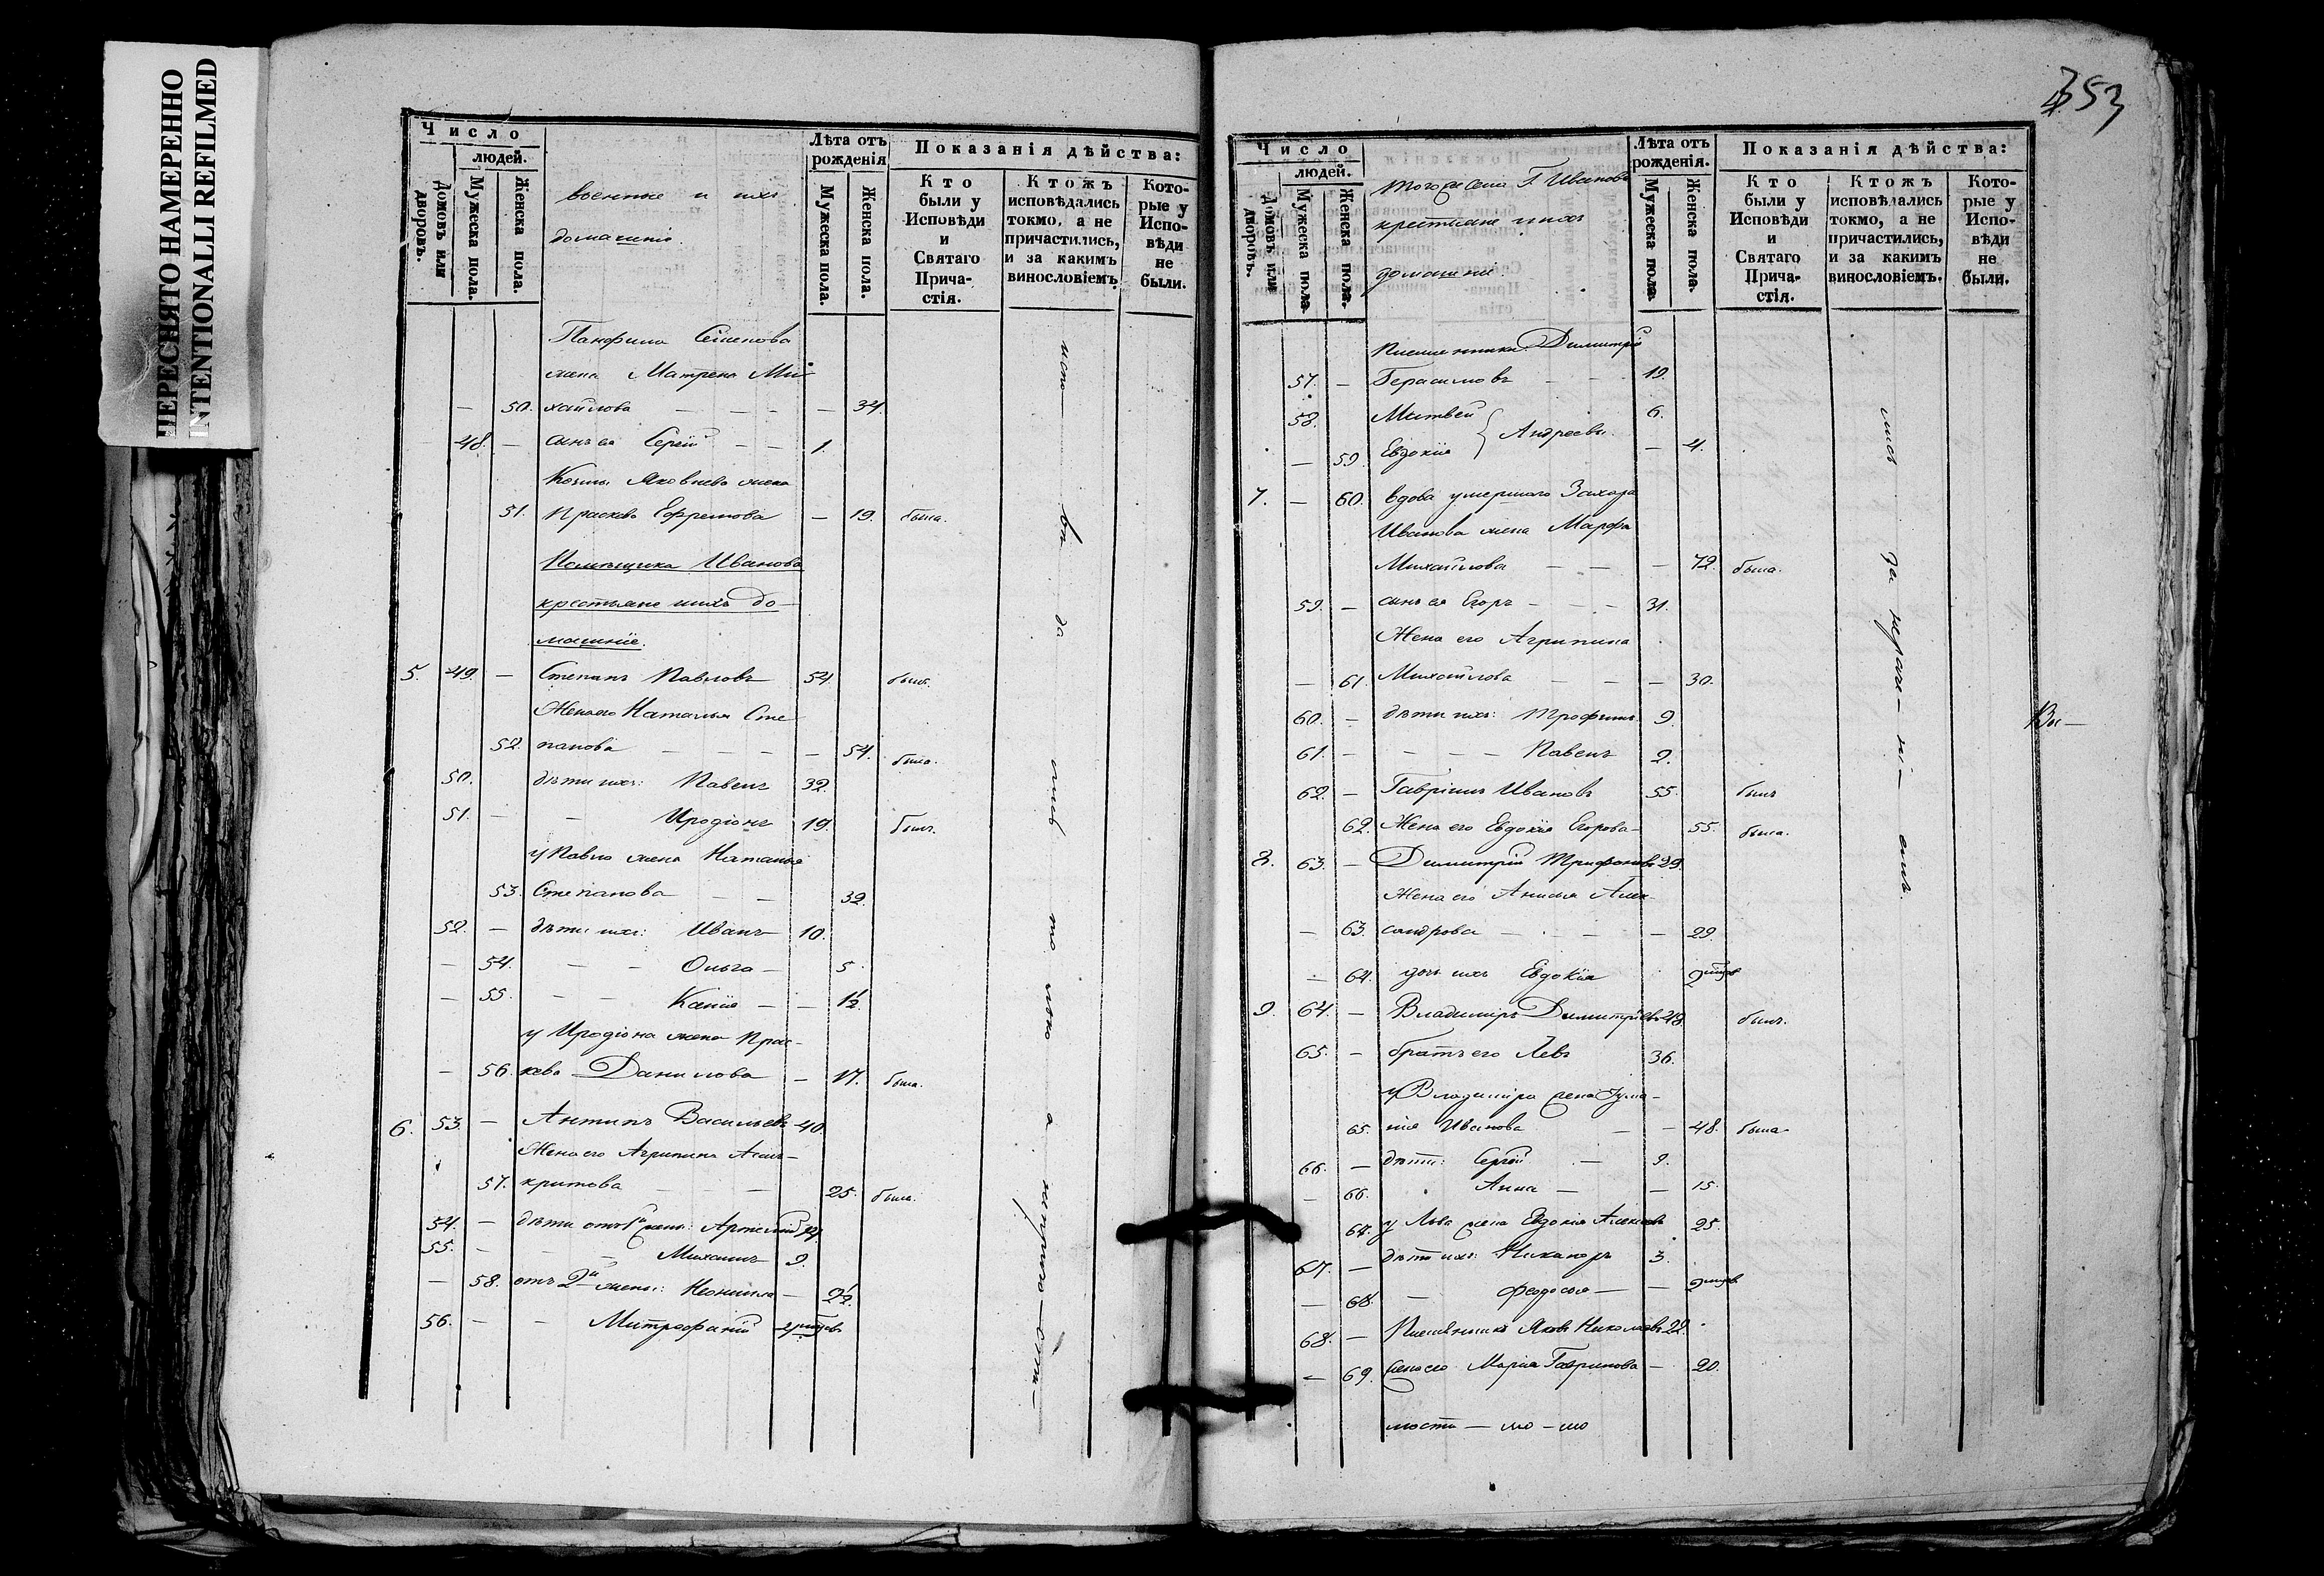 ПЕРЕСНЯТО НАМЕРЕННО
INTENTIONALLI REFILMED
Число
людей.
Домовъ или дворовъ.
Мужеска пола.
Женска пола.
военные и ихъ
домашніе.
Лѣта отъ рожденія
Мужеска пола.
Женска пола.
Показанія дѣйства:
Кто были у Исповѣди и Святаго Прича-стія.
Ктожъ исповѣдались токмо, а не причастились, и за какимъ винословіемъ.
Кото-рые у Испо-вѣди не были.
Панфила Семенова
жена Матрена Ми-
— 50. хайлова — — — — 34.
48. — сынъ ея Сергій — — 1.
Козмы Яковлева жена
51. Прасковья Ефремова — 19. была.
Помѣщика Иванова
крестьяне и ихъ до-
машніе.
5. 49. — Степанъ Павловъ 54. былъ.
Жена его Наталья Сте-
52. панова — — — — 54. была.
50. дѣти ихъ: Павелъ 32.
51. — — Иродіонъ 19. былъ.
у Павла жена Наталья
53. Степанова — — 32.
52. — дѣти ихъ: Иванъ 10.
— 54. — — Ольга — 5.
— 55. — — — — 1½.
у Иродіона жена Прас-
— 56. кева Данилова — 17. была.
6. 53. — Антипъ Васильевъ 40.
Жена его Агрипина
57. — — 25. была.
54. — дѣти отъ 1й жены: Артемій
55. — — — Михаилъ 9.
— 58. отъ 2й жены: Неонила — 2½.
56. — — Митрофаній
353
Число
людей.
Домовъ или дворовъ.
Мужеска пола.
Женска пола.
тогоже села Г. Иванова
крестьяне и ихъ
домашніе
Лѣта отъ рожденія.
Мужеска пола.
Женска пола.
Показанія дѣйства:
Кто были у Исповѣди и Святаго Прича-стія.
Ктожъ исповѣдались токмо, а не причастились, и за какимъ винословіемъ.
Кото-рые у Испо-вѣди не были.
Племенники Димитрій
57. — Герасимовъ — — 19.
58. Матвей 6.
Андреевы.
— 59. Евдокія — 4.
7. — 60. вдова умершаго Захара
Иванова жена Марфа
Михайлова — — — 72. была.
59. — сынъ ея Егоръ — — — 31.
Жена его Агрипина
— 61. Михайлова — — — 30.
60. — дѣти ихъ: Трофимъ 9.
61. — — — — Павелъ 2.
62. — Гавріилъ Ивановъ 55. былъ
62. Жена его Евдокія Егорова — 55. была.
8. 63. — Димитрій Трифоновъ 29.
Жена его Анисья Алек-
— 63. сандрова — — — — 29.
— 64. дочь ихъ Евдокія
9. 64. — Владимиръ Димитріевъ 48. былъ.
65. — братъ его Левъ 36.
у Владиміра жена
65. Иванова — — 48. была.
66. — дѣти: Сергій — 9.
— 66. Анна — — 15.
67. у Льва жена Евдокія 25.
67. — дѣти ихъ: Никаноръ 3.
— 68. — Феодосья —
68. — Племянникъ Яковъ Николаевъ 22.
— 69. Жена его Марія Гаврилова — 20.
Вы —